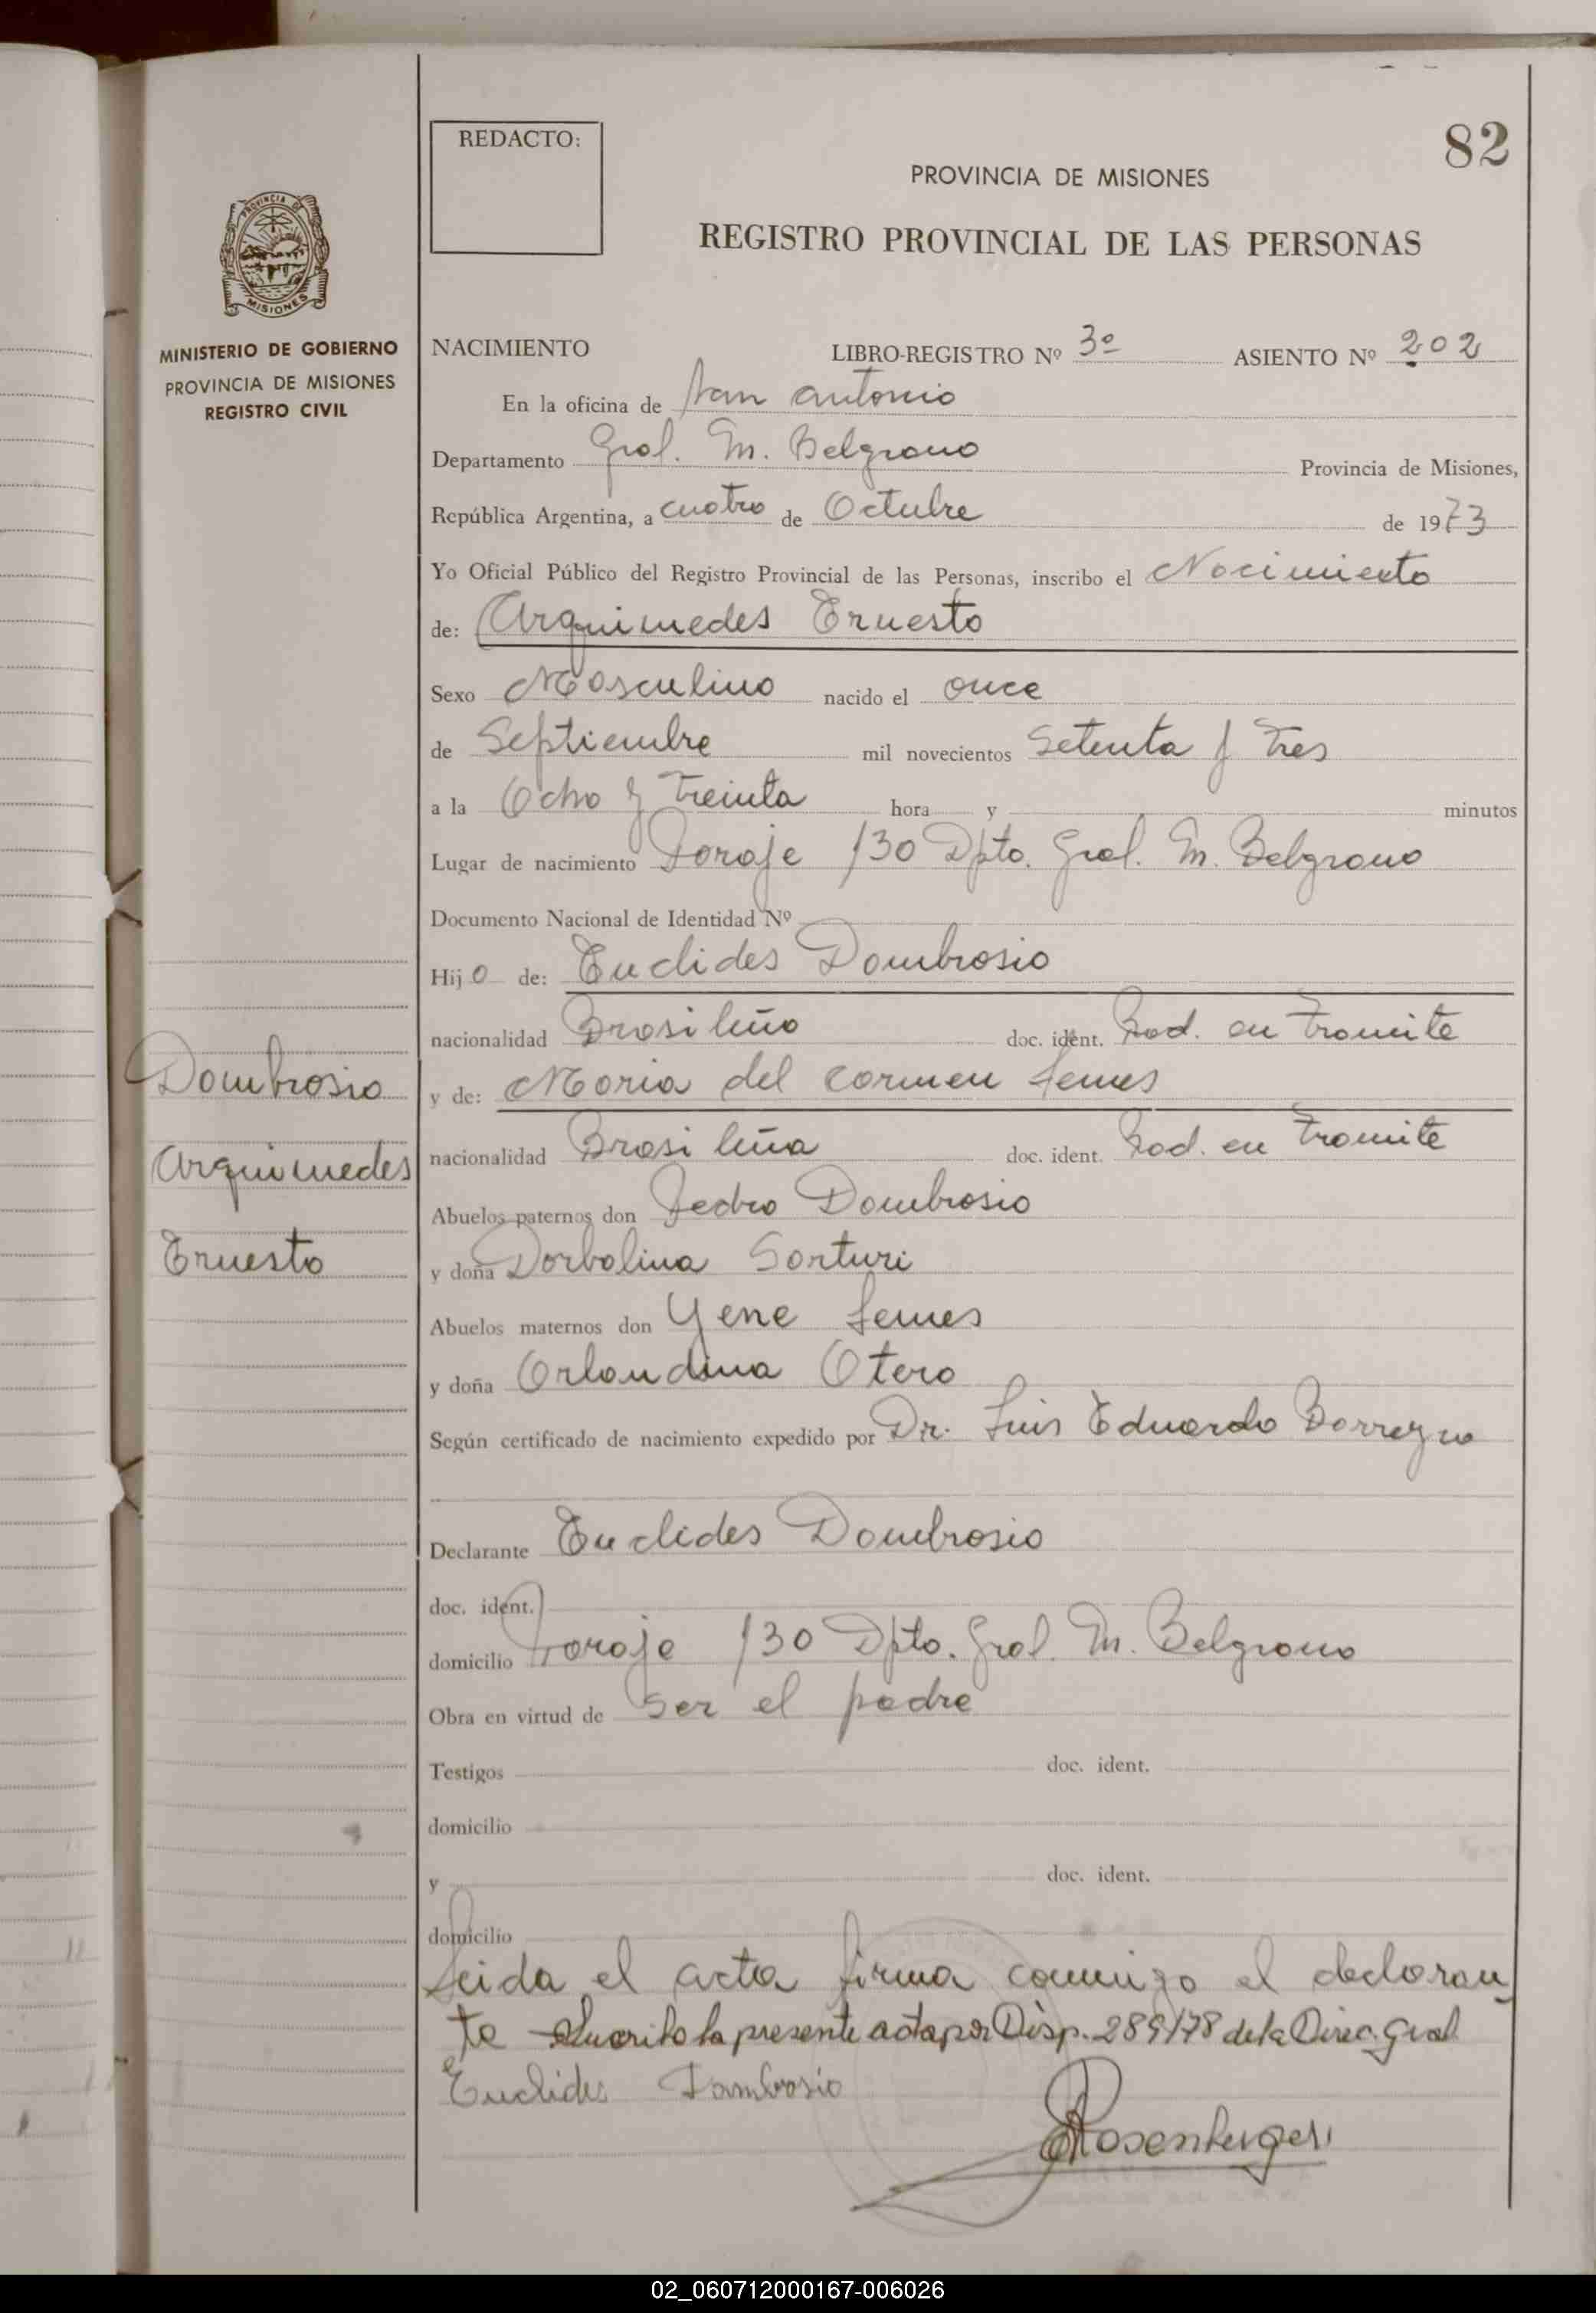 REDACTO:
82
PROVINCIA DE MISIONES
REGISTRO PROVINCIAL DE LAS PERSONAS
PROVINCIA DE
MISIONES
MINISTERIO DE GOBIERNO
PROVINCIA DE MISIONES
REGISTRO CIVIL
NACIMIENTO LIBRO-REGISTRO Nº 3º ASIENTO Nº 202
En la oficina de San Antonio
Departamento Gral. M. Belgrano Provincia de Misiones,
República Argentina, a cuatro de Octubre de 1973
Yo Oficial Público del Registro Provincial de las Personas, inscribo el Nacimiento
de: Arquimedes Ernesto
Sexo Masculino nacido el once
de Septiembre mil novecientos Setenta y Tres
a la Ocho y Treinta hora y minutos
Lugar de nacimiento Paraje 130 Dpto. Gral. M. Belgrano
Documento Nacional de Identidad Nº
Hijo de: Euclides Dombrosio
nacionalidad Brasileño doc. ident. Rad. en Tramite
y de: Maria del Carmen Lemes
nacionalidad Brasileña doc. ident. Rad. en Tramite
Abuelos paternos don Pedro Dombrosio
y doña Dorbalina Sarturi
Abuelos maternos don Yene Lemes
y doña Orlandina Otero
Según certificado de nacimiento expedido por Dr. Luis Eduardo Borrezno
Declarante Euclides Dombrosio
doc. ident.
domicilio Paraje 130 Dpto. Gral. M. Belgrano
Obra en virtud de Ser el padre
Testigos doc. ident.
domicilio
y doc. ident.
domicilio
Leida el acta firma conmigo el declaran
te la presente acta por Disp. 289/78 de la Direc. Gral
Euclides Dambrosio
Rosenberger
Dombrosio
Arquimedes
Ernesto
02_060712000167-006026